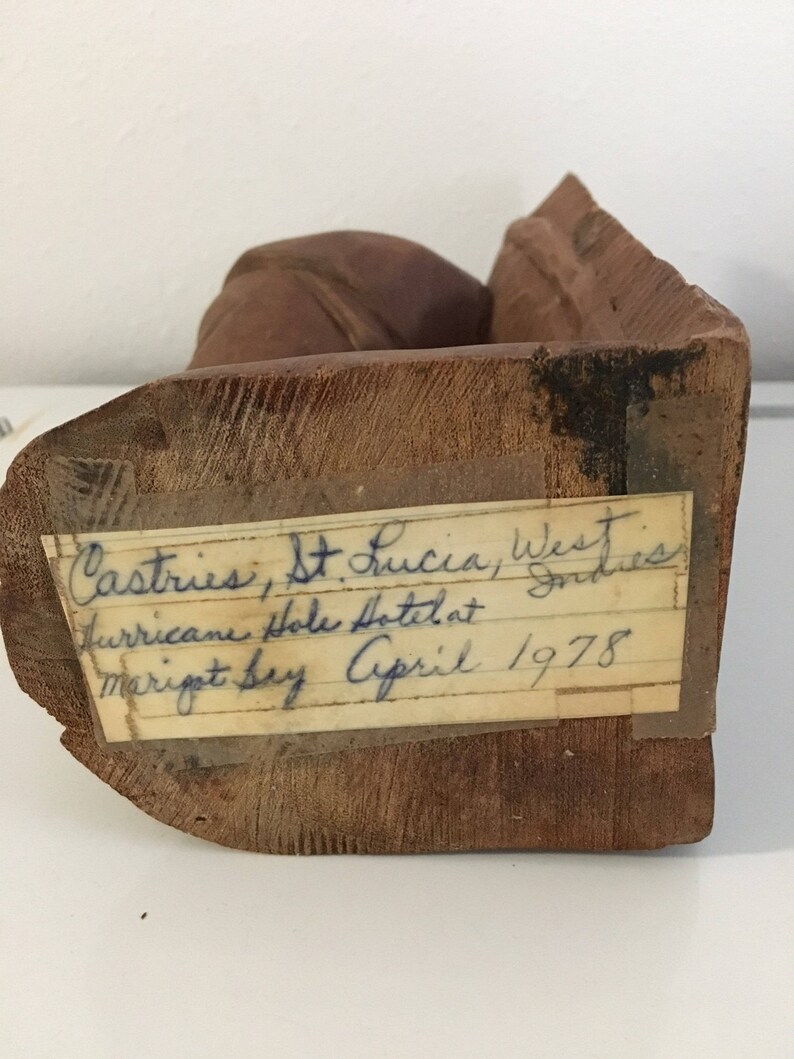 Castries, St. Lucia, West
Indies
Hurricane Hole Hotel at
Marigot Bay April 1978